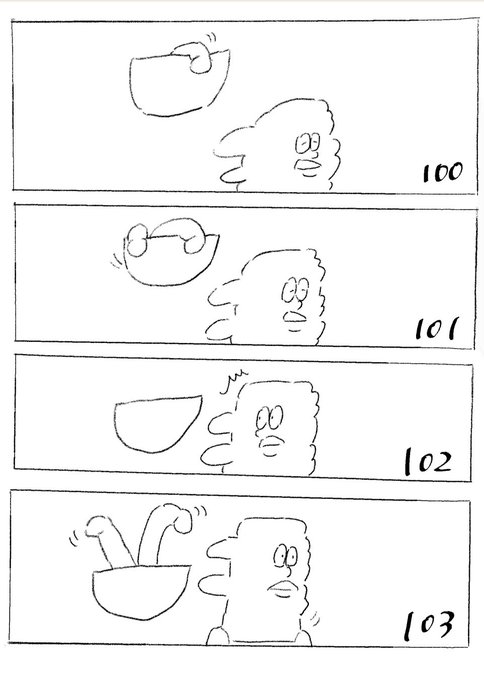 100
101
102
103